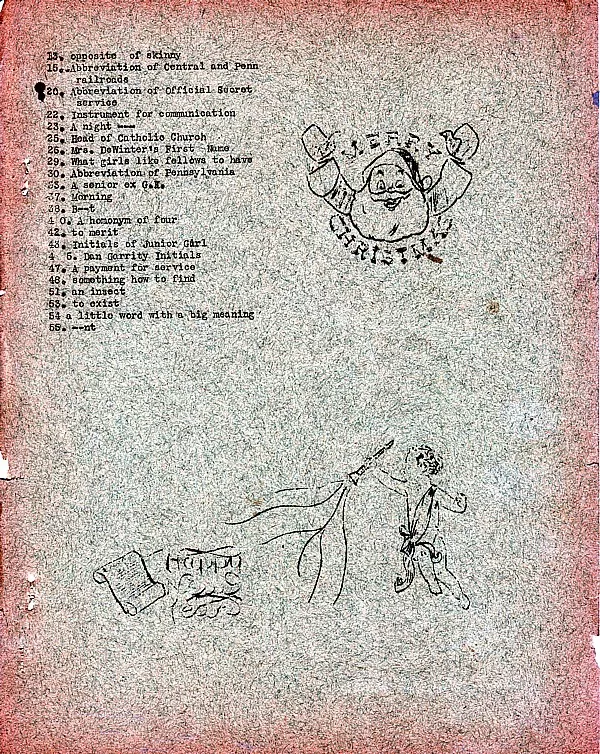 13. opposite of skinny
15..Abbreviation of Central and Penn
railroads
20. Abbreviation of Official Secret
service
22. Instrument for communication
23. A night ---
25. Head of Catholic Church
26. Mrs. DeWinter's First Name
29. What girls like fellows to have
30. Abbreviation of Pennsylvania
33. A senior ex G.I.
37. Morning
38. B--t
4 0. A homonym of four
42. to merit
43. Initials of Junior Girl
4 5. Dan Garrity Initials
47. A payment for service
48. something how to find
51. an insect
53. to exist
54 a little word with a big meaning
55. --nt
MERRY
CHRISTMAS
Happy